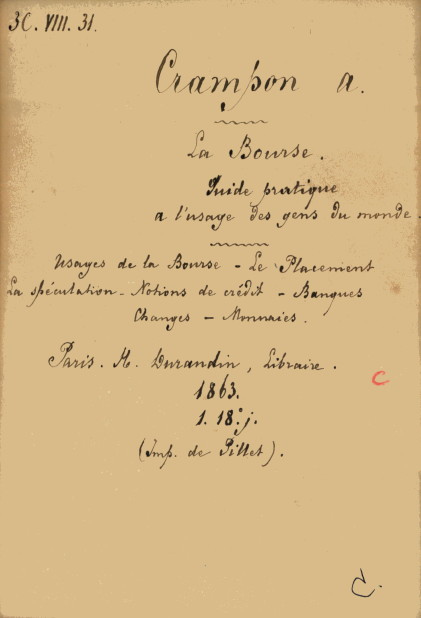 3C. VIII. 31.
Crampon a.
La Bourse.
Guide pratique
a l'usage des gens du monde.
Usages de la Bourse - Le Placement
La spéculation - Notions de crédit - Banques
Changes - Monnaies.
Paris. H. Durandin, Libraire.
C
1863.
1. 18° j.
(Imp. de Pillet).
C.